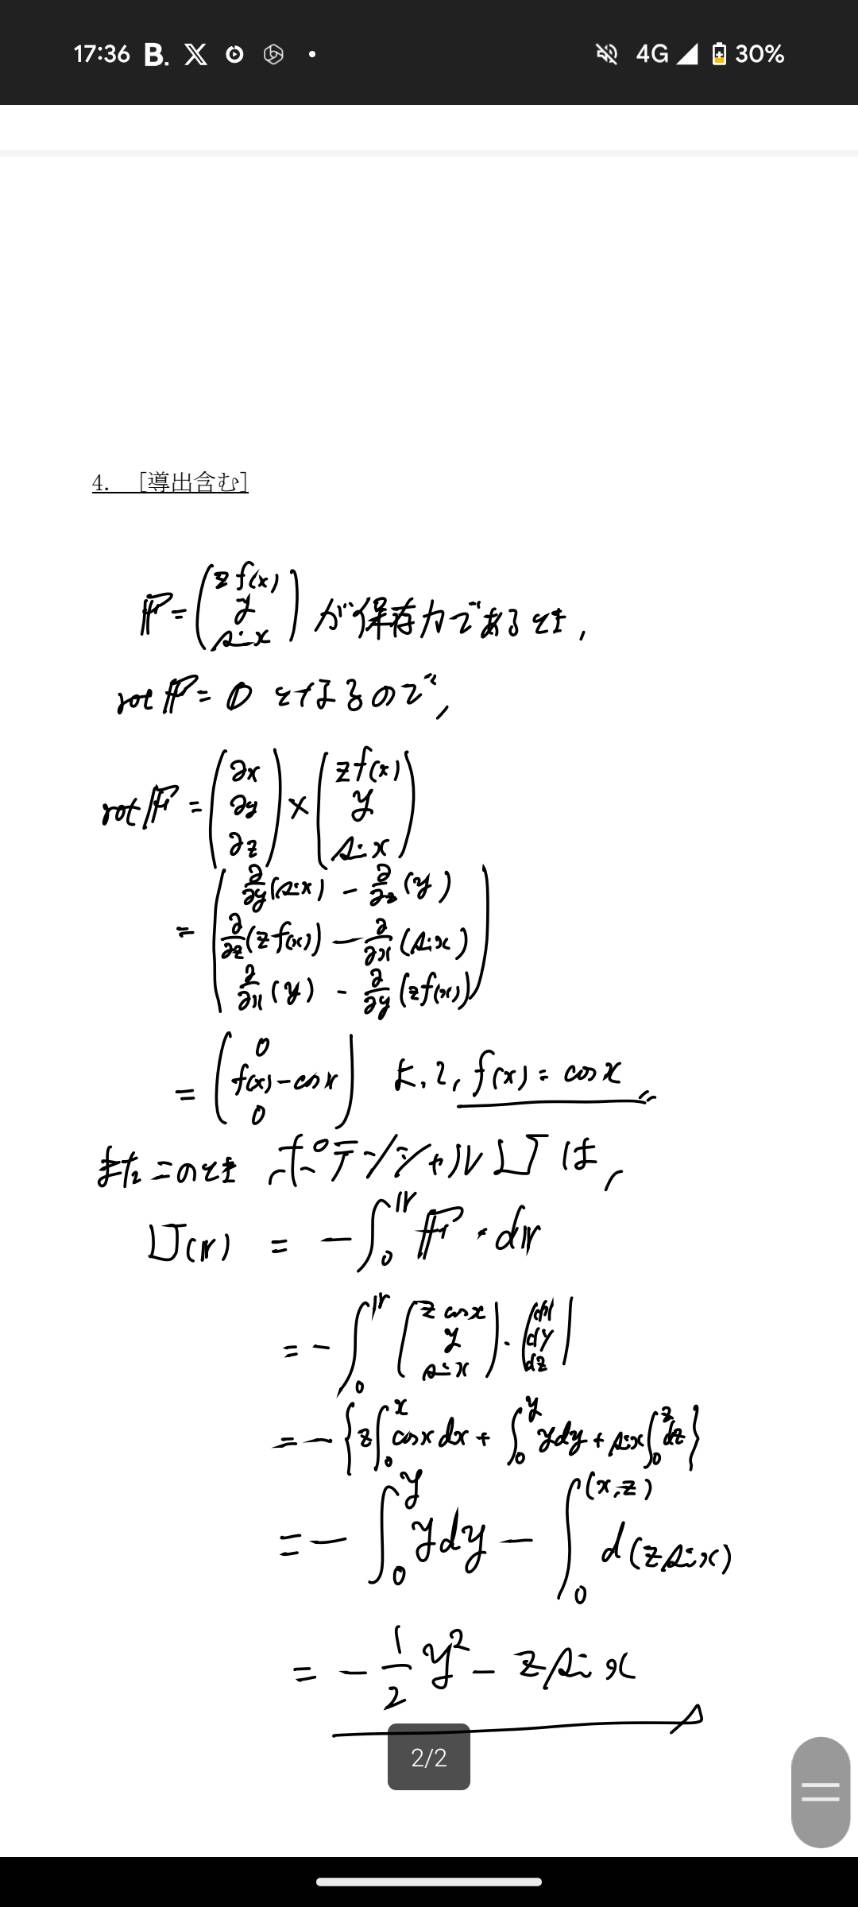 17:36 B. X 4G 30%
4. [導出含む]
𝔽 = (z f(x), y, sin x) が保存力であるとき,
rot 𝔽 = 0 となるので,
rot 𝔽 = (∂x, ∂y, ∂z) × (z f(x), y, sin x)
= (∂/∂y (sin x) - ∂/∂z (y), ∂/∂z (z f(x)) - ∂/∂x (sin x), ∂/∂x (y) - ∂/∂y (z f(x)))
= (0, f(x) - cos x, 0) よって, f(x) = cos x
またこのとき ポテンシャル U は,
U(𝕣) = - ∫₀^𝕣 𝔽 · d𝕣
= - ∫₀^𝕣 (z cos x, y, sin x) · (dx, dy, dz)
= - {z ∫₀^x cos x dx + ∫₀^y y dy + sin x ∫₀^z dz}
= - ∫₀^y y dy - ∫₀^(x,z) d(z sin x)
= - 1/2 y² - z sin x
2/2